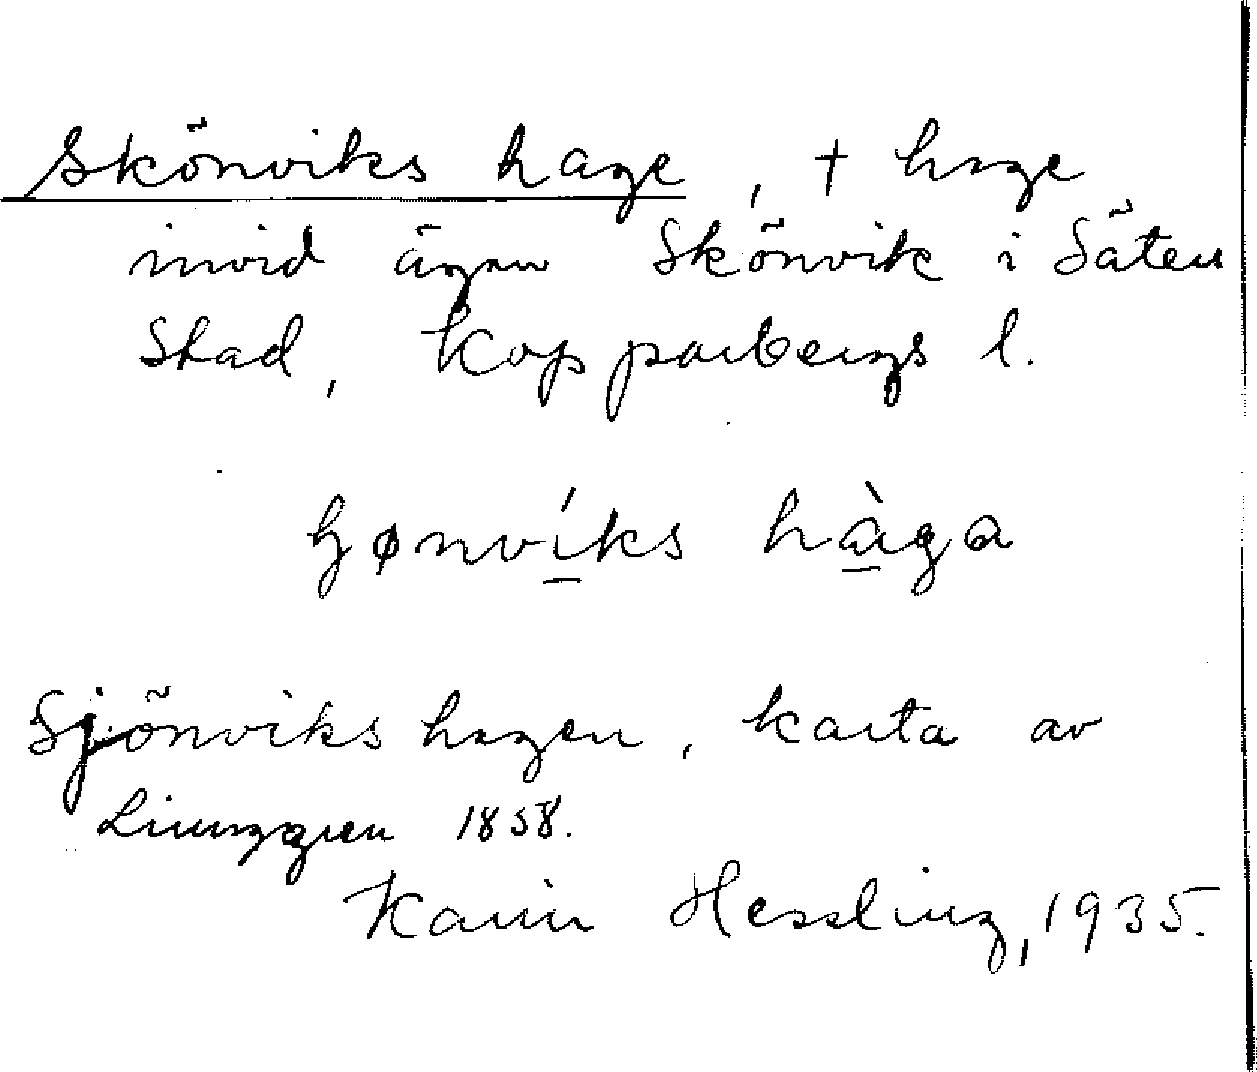 Skönviks hage, † hage
invid ägan Skönvik i Säters
Stad, Kopparbergs l.
ɧønvíks hàga
Sjönviks hagen, karta av
Ljunggren 1858.
Karin Hessling, 1935.